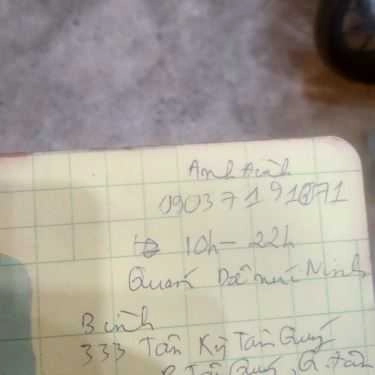 Anh
09037191071
10h - 22h
Quán Dê núi Ninh
Bình
333 Tân Kỳ Tân Quý
P. Tân Quý, Q. Tân